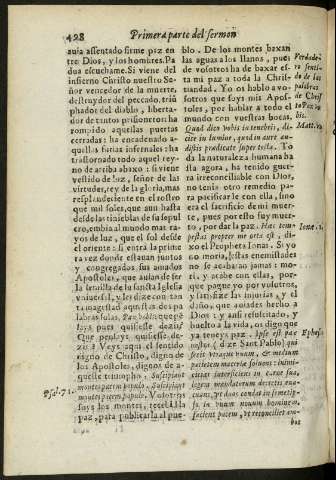 428
Primera parte del sermon
auia assentado firme paz en
tre Dios, y los hombres. Pa
dua escuchame. Si viene del
infierno Christo nuestro Se
ñor vencedor de la muerte,
destruydor del peccado, triũ
phador del diablo, liberta-
dor de tantos prisioneros: ha
rompido aquellas puertas
cerradas: ha encadenado a-
quellas furias infernales: ha
trastornado todo aquel rey-
no de arriba abaxo: si viene
vestido de luz, señor de las
virtudes, rey de la gloria, mas
resplandeciente en el rostro
que mil soles, que aun hasta
desde las tinieblas de su sepul
cro, embia al mundo mas ra-
yos de luz, que el sol desde
el oriente: si entra la prime
ra vez donde estauan juntos
y congregados sus amados
Apostoles, que auian de ser
la semilla de la sancta Iglesia
vniuersal, y les dize con tan
ta magestad aquestas dos pa
labras solas, Pax vobis:
que pensays
Psal. 71.
aqueste triumpho. Suscipiant
montes pacem populo. Suscipiant
montes pacem populo. Vosotros
soys los montes, tened la
paz, para publicarla al pue-
blo. De los montes baxan
las aguas a los llanos, pues
de vosotros ha de baxar es-
ta mi paz a toda la Chris-
tiandad. Yo os hablo a vo-
sotros que soys mis Apos-
toles, por hablar a todo el
mundo con vuestras bocas.
Quod dico vobis in tenebris, di-
cite in lumine, quod in aure au-
distis prædicate super tecta. To
da la naturaleza humana ha
sta agora, ha tenido guer-
ra irreconciliable con Dios,
no tenia otro remedio pa-
ra pacificar la tierra, sino
era el sacrificio de mi muer-
te, pues por esto fuy muer-
to, por dar la paz. Hæc tem-
pestas propter me orta est, di-
xo el Propheta Ionas. Si yo
no moria, estas enemistades
no se acabarian jamas: mo-
ri, y acabe con ellas, por-
que pague yo por vosotros,
y satisfize las injurias, y el
daño, que auiades hecho a
Dios: y assi resuscitado, y
buelto a la vida, os digo que
ya teneys paz. Ipse est pax
nostra (dize Sant Pablo) qui
fecit vtraque vnum, & medium
parietem maceriæ soluens: inimi-
citias interficiens in carne sua,
legem mandatorum decretis eua-
cuans, vt duos condat in semetip-
so in vnum nouum hominem,
faciens pacem, vt reconciliet am-
bos
Verdade-
ro senti-
do de las
palabras
de Christ
Pax vo
bis.
Ionæ. 1.